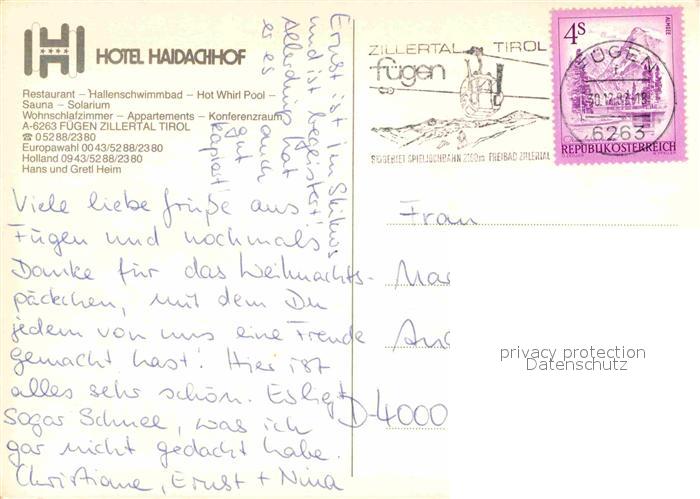 HOTEL HAIDACHHOF
Restaurant – Hallenschwimmbad – Hot Whirl Pool –
Sauna – Solarium
Wohnschlafzimmer – Appartements – Konferenzraum
A-6263 FÜGEN ZILLERTAL TIROL
☎ 05288/2380
Europawahl 0043/5288/2380
Holland 0943/5288/2380
Hans und Gretl Heim
Viele liebe Grüße aus
Fügen und nochmals
Danke für das Weihnachts-
päckchen, mit dem Du
jedem von uns eine Freude
gemacht hast! Hier ist
alles sehr schön. Es liegt
sogar Schnee, was ich
gar nicht gedacht habe.
Christiane, Ernst + Nina
Ernst ist im Skikurs
und ist begeistert!
Allerdings hat
er es auch
gut
kapiert
ZILLERTAL TIROL
fügen
SKIGEBIET SPIELJOCHBAHN FREIBAD ZILLERTAL
4S
ALMSEE
REPUBLIK ÖSTERREICH
FÜGEN
6263
Frau
D-4000
privacy protection
Datenschutz